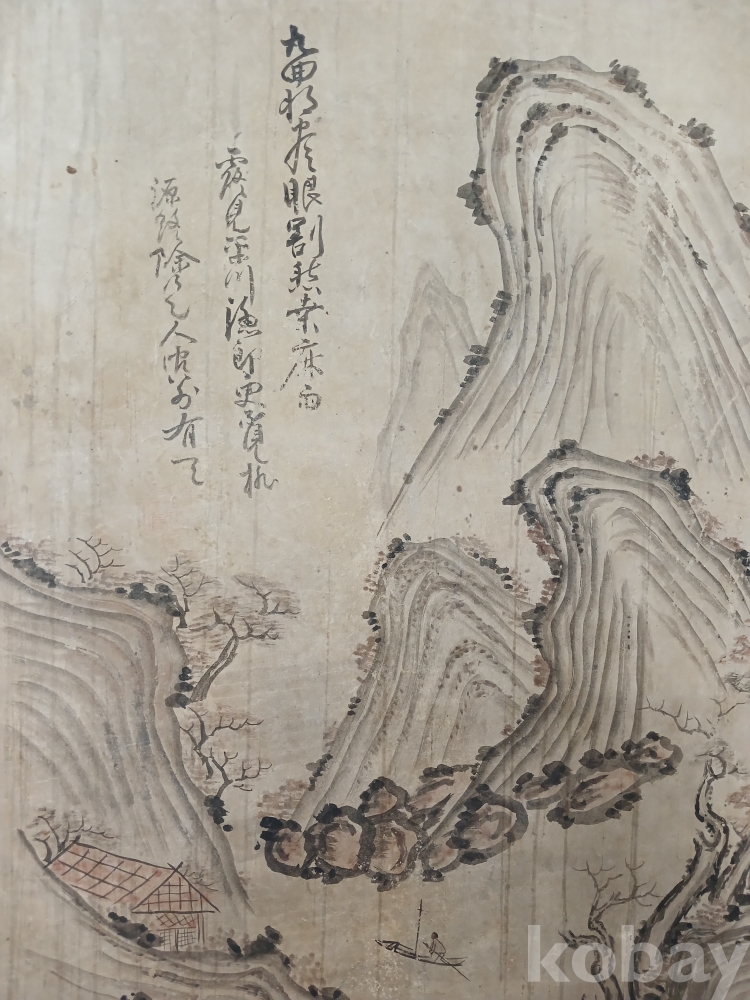 九曲將窮眼割然桑麻雨
露見平川漁郎更覓桃
源路除是人間別有天
kobay